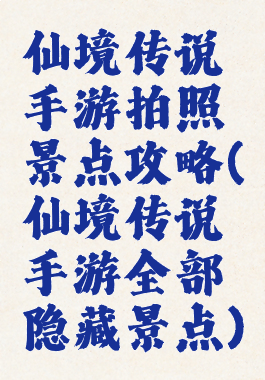 仙境传说
手游拍照
景点攻略(
仙境传说
手游全部
隐藏景点)